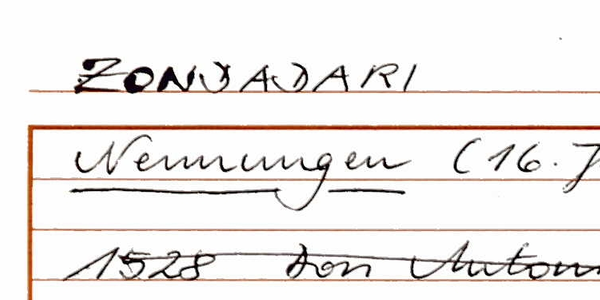 ZONDADARI
Nennungen (16. J
1528 Don Anton